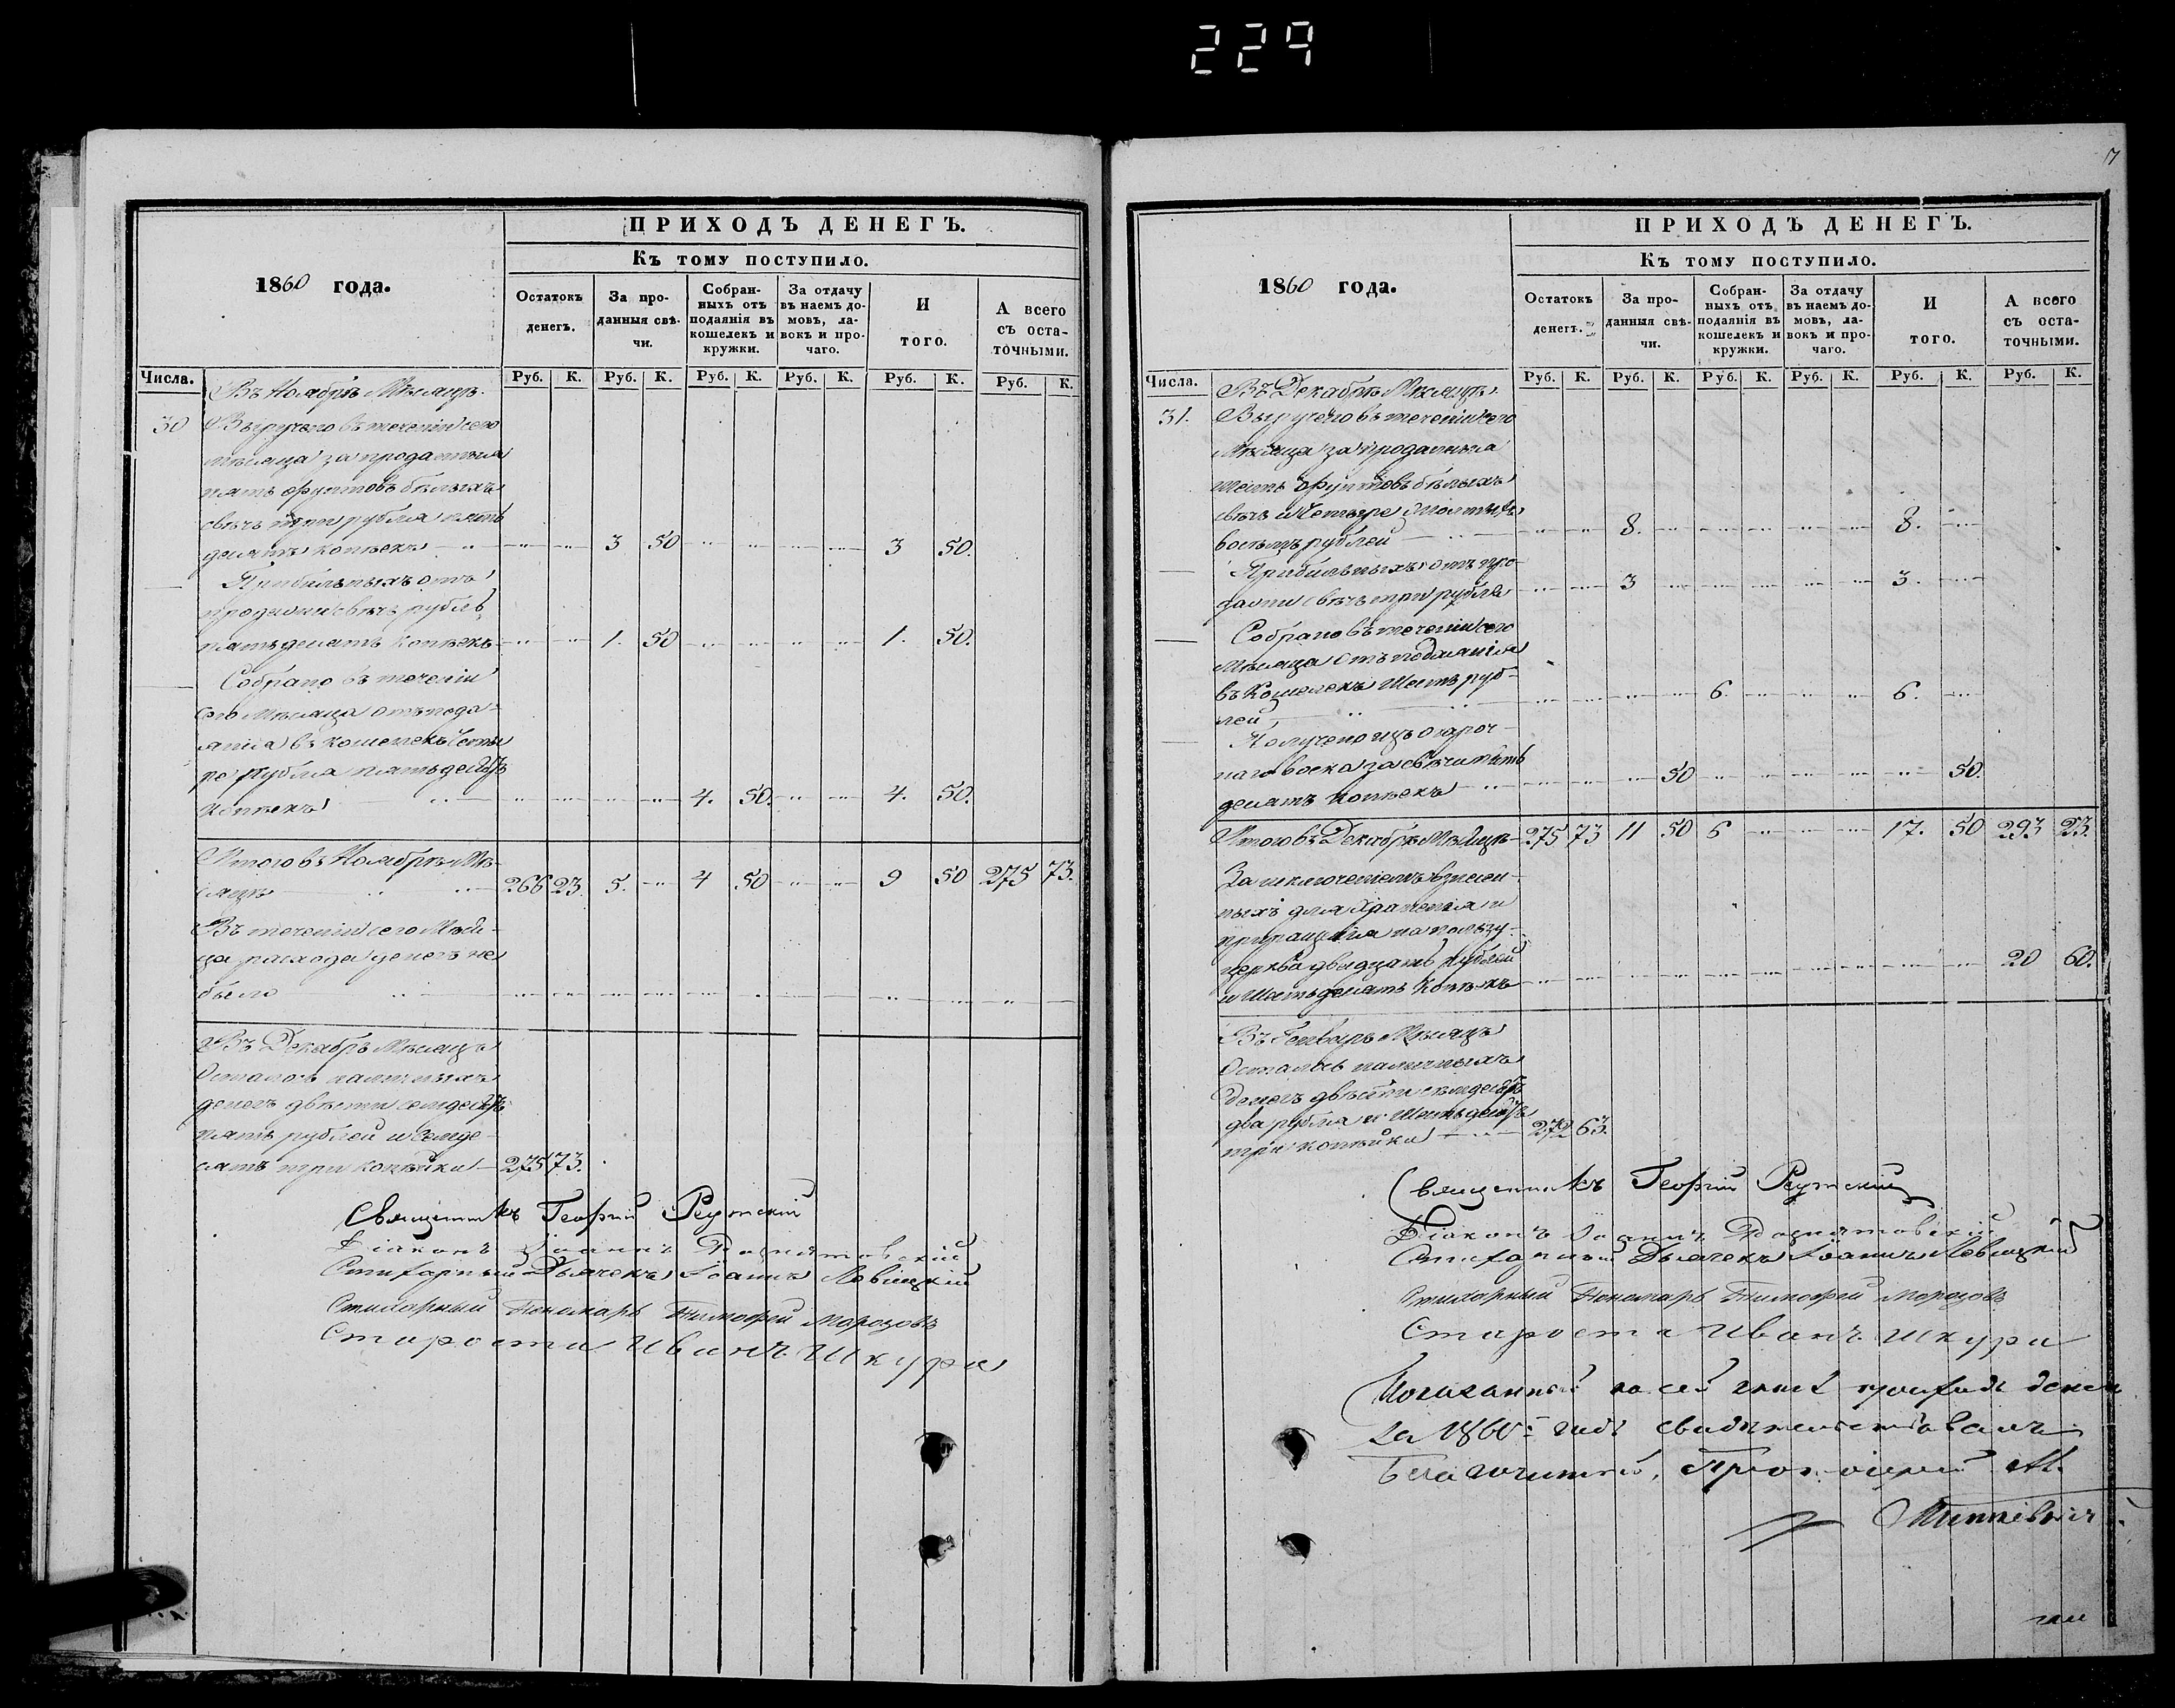 229
ПРИХОДЪ ДЕНЕГЪ.
Къ тому поступило.
1860 года.
Остатокъ денегъ.
За проданныя свѣчи.
Собранныхъ отъ подаянія въ кошелекъ и кружки.
За отдачу въ наемъ домовъ, лавокъ и прочаго.
И того.
А всего съ остаточными.
Числа.
Руб. К. Руб. К. Руб. К. Руб. К. Руб. К. Руб. К.
Въ Ноябрѣ Мѣсяцѣ.
30 Выручено въ теченіи сего
мѣсяца за проданныя
пять фунтовъ бѣлыхъ
свѣчъ три рубля пять
десятъ копѣекъ 3 50 3 50.
Прибыльныхъ отъ
продажи свѣчъ рубль
пятьдесятъ копѣекъ 1. 50 1. 50.
Собрано въ теченіи
сего Мѣсяца отъ пода-
янія въ кошелекъ четы
ре рубля пятьдесятъ
копѣекъ 4. 50. 4. 50.
Итого въ Ноябрѣ Мѣ-
сяцѣ 266 23. 5. 4 50 9 50 275 73.
Въ теченіи сего Мѣся-
ца расхода денегъ не
было
Въ Декабрь Мѣсяцъ
Осталось наличныхъ
денегъ двѣсти семдесятъ
пять рублей и семде-
сятъ три копѣйки 275 73.
Священникъ Георгій Реутскій
Діаконъ Іоаннъ
Стихарный Дьячекъ Іоаннъ Левицкій
Стихарный Пономарь Тимофей Морозовъ
Староста Иванъ Шкура
7
ПРИХОДЪ ДЕНЕГЪ.
Къ тому поступило.
1860 года.
Остатокъ денегъ.
За проданныя свѣчи.
Собранныхъ отъ подаянія въ кошелекъ и кружки.
За отдачу въ наемъ домовъ, лавокъ и прочаго.
И того.
А всего съ остаточными.
Числа.
Руб. К. Руб. К. Руб. К. Руб. К. Руб. К. Руб. К.
Въ Декабрѣ Мѣсяцѣ.
31. Выручено въ теченіи сего
Мѣсяца за проданныя
шесть фунтовъ бѣлыхъ
свѣчъ и Четыре желтыхъ
восемь рублей 8. 8.
Прибыльныхъ отъ про-
дажи свѣчъ три рубля 3 3.
Собрано въ теченіи сего
Мѣсяца отъ подаянія
въ Кошелекъ Шесть руб-
лей 6. 6.
Получено изъ огароч-
наго воска за свѣчи пять
десятъ копѣекъ 50 50.
Итого въ Декабрѣ Мѣсяцѣ 275 73 11 50 6 17. 50 293 23.
За исключеніемъ взнесен-
ныхъ для храненія и
приращенія на пользу
церкви двадцать рублей
и Шестьдесятъ Копѣекъ 20 60.
Въ Генварь Мѣсяцъ
Осталось наличныхъ
денегъ двѣсти семдесятъ
два рубля и Шестьдесятъ
три копѣйки 272 63.
Священникъ Георгій Реутскій
Діаконъ Іоаннъ
Стихарный Дьячекъ Іоаннъ Левицкій
Стихарный Пономарь Тимофей Морозовъ
Староста Иванъ Шкура
Показанный по сей книгѣ приходъ денегъ
за 1860 годъ свидѣтельствовалъ
Благочинный, Протоіерей М.